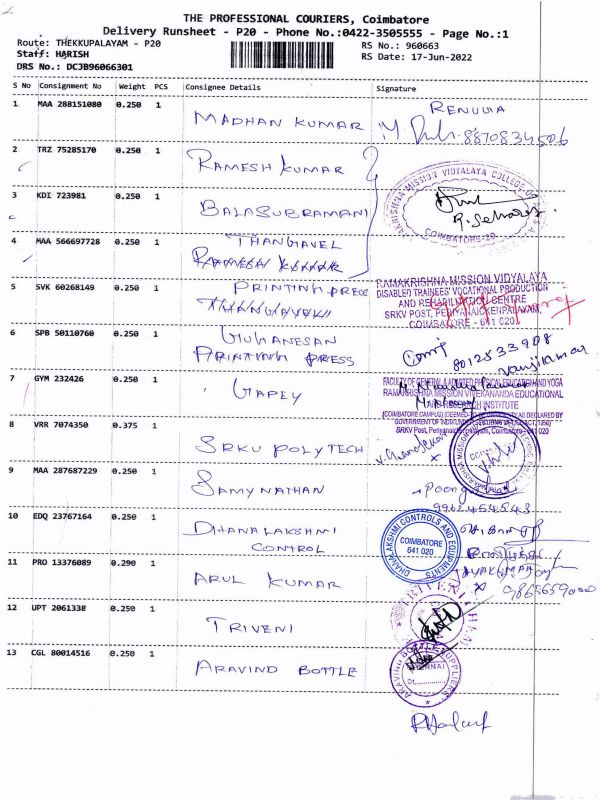 THE PROFESSIONAL COURIERS, Coimbatore
Delivery Runsheet - P20 - Phone No.:0422-3505555 - Page No.:1
Route: THEKKUPALAYAM - P20
RS No.: 960663
Staff: HARISH
RS Date: 17-Jun-2022
DRS No.: DCJB96066301
S No Consignment No Weight PCS Consignee Details Signature
1 MAA 288151080 0.250 1 MADHAN KUMAR RENUKA
8870834506
2 TRZ 75285170 0.250 1 RAMESH KUMAR
RAMAKRISHNA MISSION VIDYALAYA COLLEGE OF
COIMBATORE-20
3 KDI 723981 0.250 1 BALASUBRAMANI
4 MAA 566697728 0.250 1 THANGAVEL
RAMESH KUMAR
5 SVK 60268149 0.250 1 PRINTING PRESS
THANGAVEL
RAMAKRISHNA MISSION VIDYALAYA
DISABLED TRAINEES' VOCATIONAL PRODUCTION
AND REHABILITATION CENTRE
SRKV POST, PERIYANAICKENPALAYAM,
COIMBATORE - 641 020
6 SPB 50110760 0.250 1 GUHANESAN
PRINTING PRESS
8012833908
7 GYM 232426 0.250 1 GAPEY
FACULTY OF GENERAL & ADAPTED PHYSICAL EDUCATION AND YOGA
RAMAKRISHNA MISSION VIVEKANANDA EDUCATIONAL
AND RESEARCH INSTITUTE
(COIMBATORE CAMPUS) (DEEMED UNIVERSITY AS DECLARED BY
SRKV Post, Periyanaickenpalayam, Coimbatore - 641 020
8 VRR 7074350 0.375 1 SRKV POLYTECH
9 MAA 287687229 0.250 1 SAMYNATHAN
9962454543
10 EDQ 23767164 0.250 1 DHANALAKSHMI
CONTROL
DHANALAKSHMI CONTROLS AND EQUIPMENTS
COIMBATORE
641 020
11 PRO 13376089 0.290 1 ARUL KUMAR
9865659000
12 UPT 2061338 0.250 1 TRIVENI
13 CGL 80014516 0.250 1 ARAVIND BOTTLE
ARAVIND BOTTLE SUPPLIERS